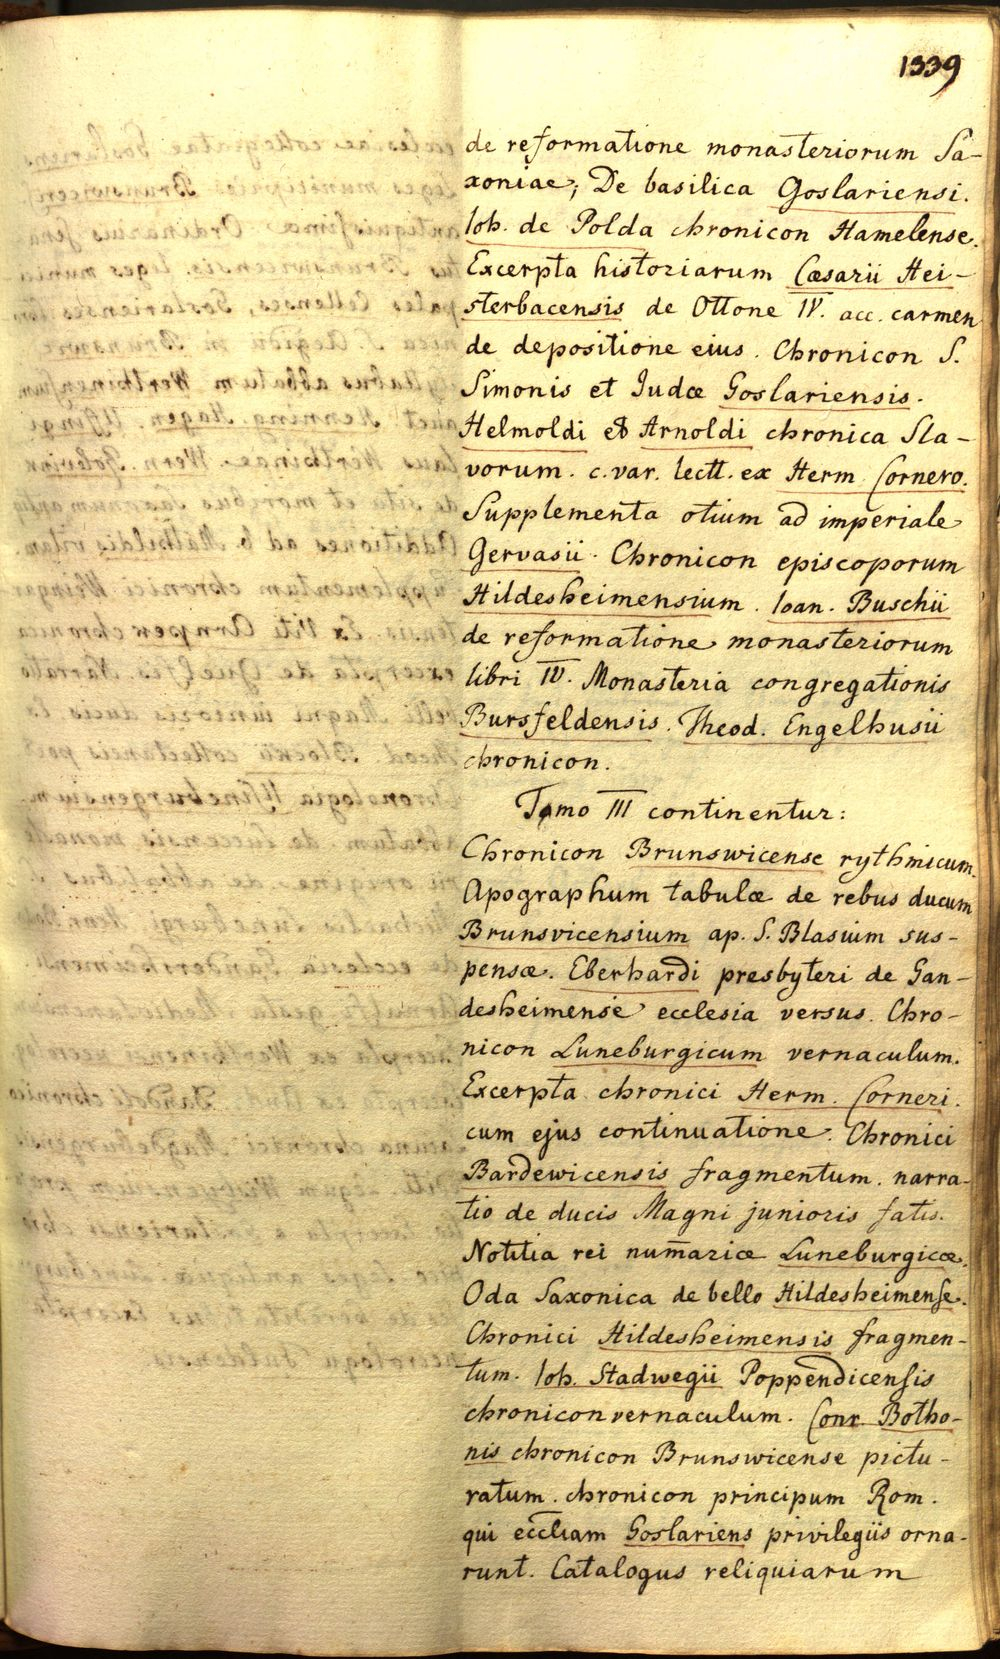 1339
de reformatione monasteriorum Sa-
xoniae; De basilica Goslariensi.
Ioh. de Polda chronicon Hamelense.
Excerpta historiarum Cæsarii Hei-
sterbacensis de Ottone IV. acc. carmen
de depositione eius. Chronicon S.
Simonis et Iudæ Goslariensis.
Helmoldi et Arnoldi chronica Sla-
vorum. c. var. lectt. ex Herm Cornero.
Supplementa otium ad imperiale
Gervasii. Chronicon episcoporum
Hildesheimensium. Ioan. Buschii
de reformatione monasteriorum
libri IV. Monasteria congregationis
Bursfeldensis. Theod. Engelhusii
chronicon.
Tomo III continentur:
Chronicon Brunswicense rythmicum.
Apographum tabulæ de rebus ducum
Brunsvicensium ap. S. Blasium sus-
pensæ. Eberhardi presbyteri de Gan-
desheimense ecclesia versus. Chro-
nicon Luneburgicum vernaculum.
Excerpta chronici Herm. Corneri.
cum ejus continuatione. Chronici
Bardewicensis fragmentum. narra-
tio de ducis Magni junioris fatis.
Notitia rei num̄ariæ Luneburgicæ.
Oda Saxonica de bello Hildesheimense.
Chronici Hildesheimensis fragmen-
tum. Ioh. Stadwegii Poppendicensis
chronicon vernaculum. Conr. Botho-
nis chronicon Brunswicense pictu-
ratum. chronicon principum Rom.
qui eccliam Goslariens privilegiis orna-
runt. Catalogus reliquiarum